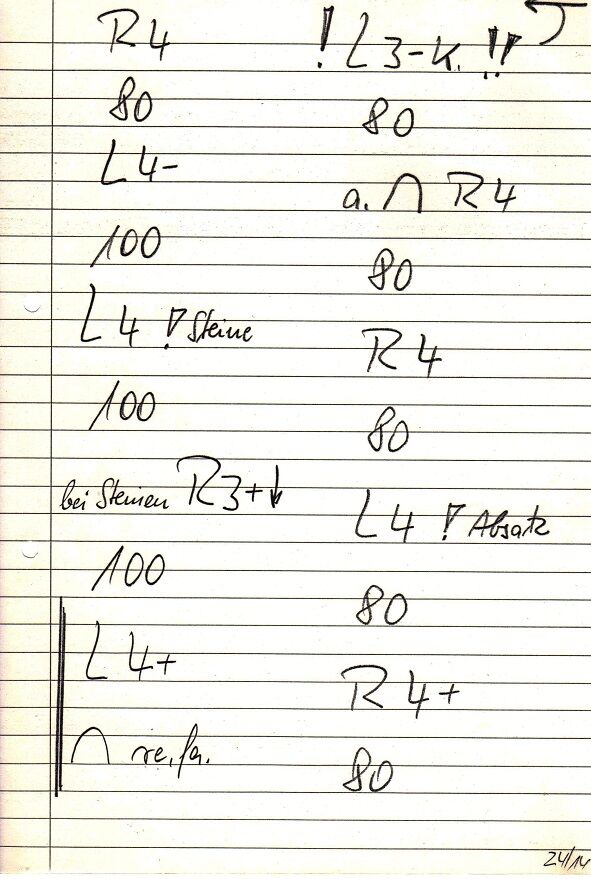 R 4
80
L 4-
100
L 4 ! Steine
100
bei Steinen R 3+ ↓
100
L 4+
∩ re. fa.
! L 3-K. !!
80
a. ∩ R 4
80
R 4
80
L 4 ! Absatz
80
R 4+
80
24/14